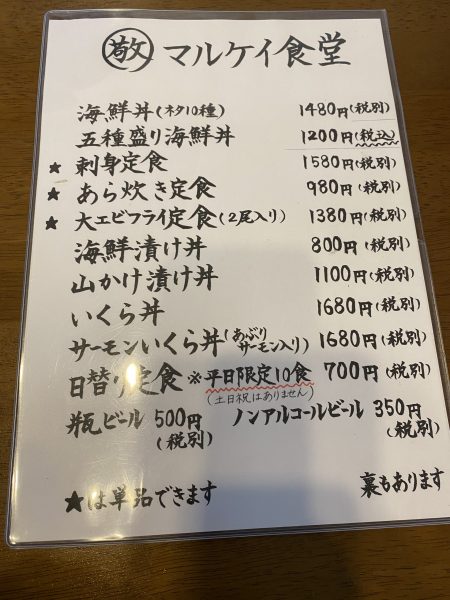 敬 マルケイ食堂
海鮮丼(ネタ10種) 1480円(税別)
五種盛り海鮮丼 1200円(税込)
★ 刺身定食 1580円(税別)
★ あら炊き定食 980円(税別)
★ 大エビフライ定食(2尾入り) 1380円(税別)
海鮮漬け丼 800円(税別)
山かけ漬け丼 1100円(税別)
いくら丼 1680円(税別)
サーモンいくら丼(あぶりサーモン入り) 1680円(税別)
日替り定食 ※平日限定10食 700円(税別)
(土日祝はありません)
瓶ビール 500円(税別) ノンアルコールビール 350円(税別)
★は単品できます 裏もあります